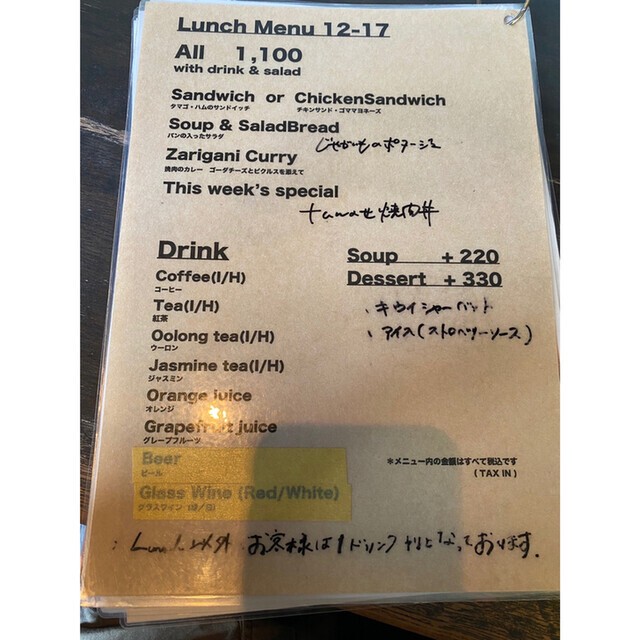 Lunch Menu 12-17
All 1,100
with drink & salad
Sandwich or ChickenSandwich
タマゴ・ハムのサンドイッチ チキンサンド・ゴママヨネーズ
Soup & SaladBread
パンの入ったサラダ じゃがいものポタージュ
Zarigani Curry
挽肉のカレー ゴーダチーズとピクルスを添えて
This week's special
焼肉丼
Drink
Coffee(I/H)
コーヒー
Tea(I/H)
紅茶
Oolong tea(I/H)
ウーロン
Jasmine tea(I/H)
ジャスミン
Orange juice
オレンジ
Grapefruit juice
グレープフルーツ
Beer
ビール
Glass Wine (Red/White)
グラスワイン
Soup + 220
Dessert + 330
、キウイシャーベット
、アイス(ストロベリーソース)
*メニュー内の金額はすべて税込です
(TAX IN)
: Lunch以外 お客様は1ドリンク制となっております.